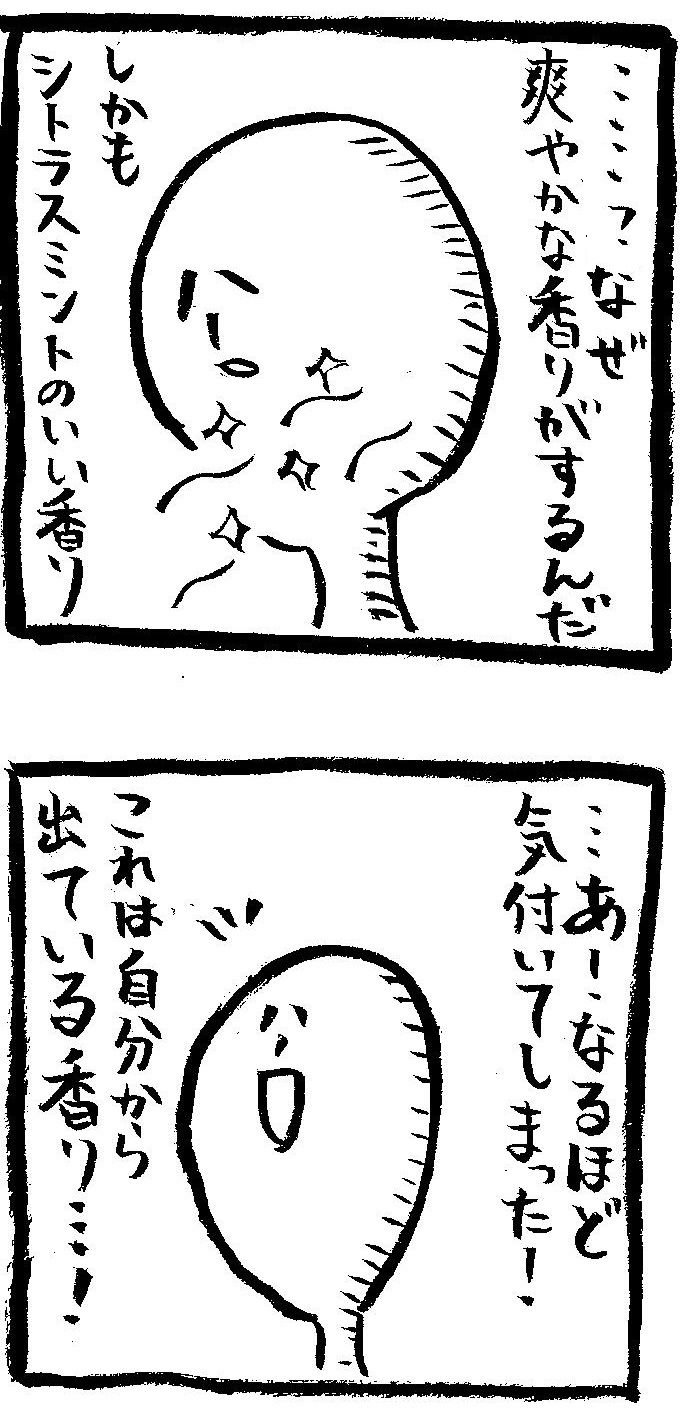 ………?なぜ
爽やかな香りがするんだ
しかも
シトラスミントのいい香り
…あー…なるほど
気付いてしまった!
これは自分から
出ている香り…!